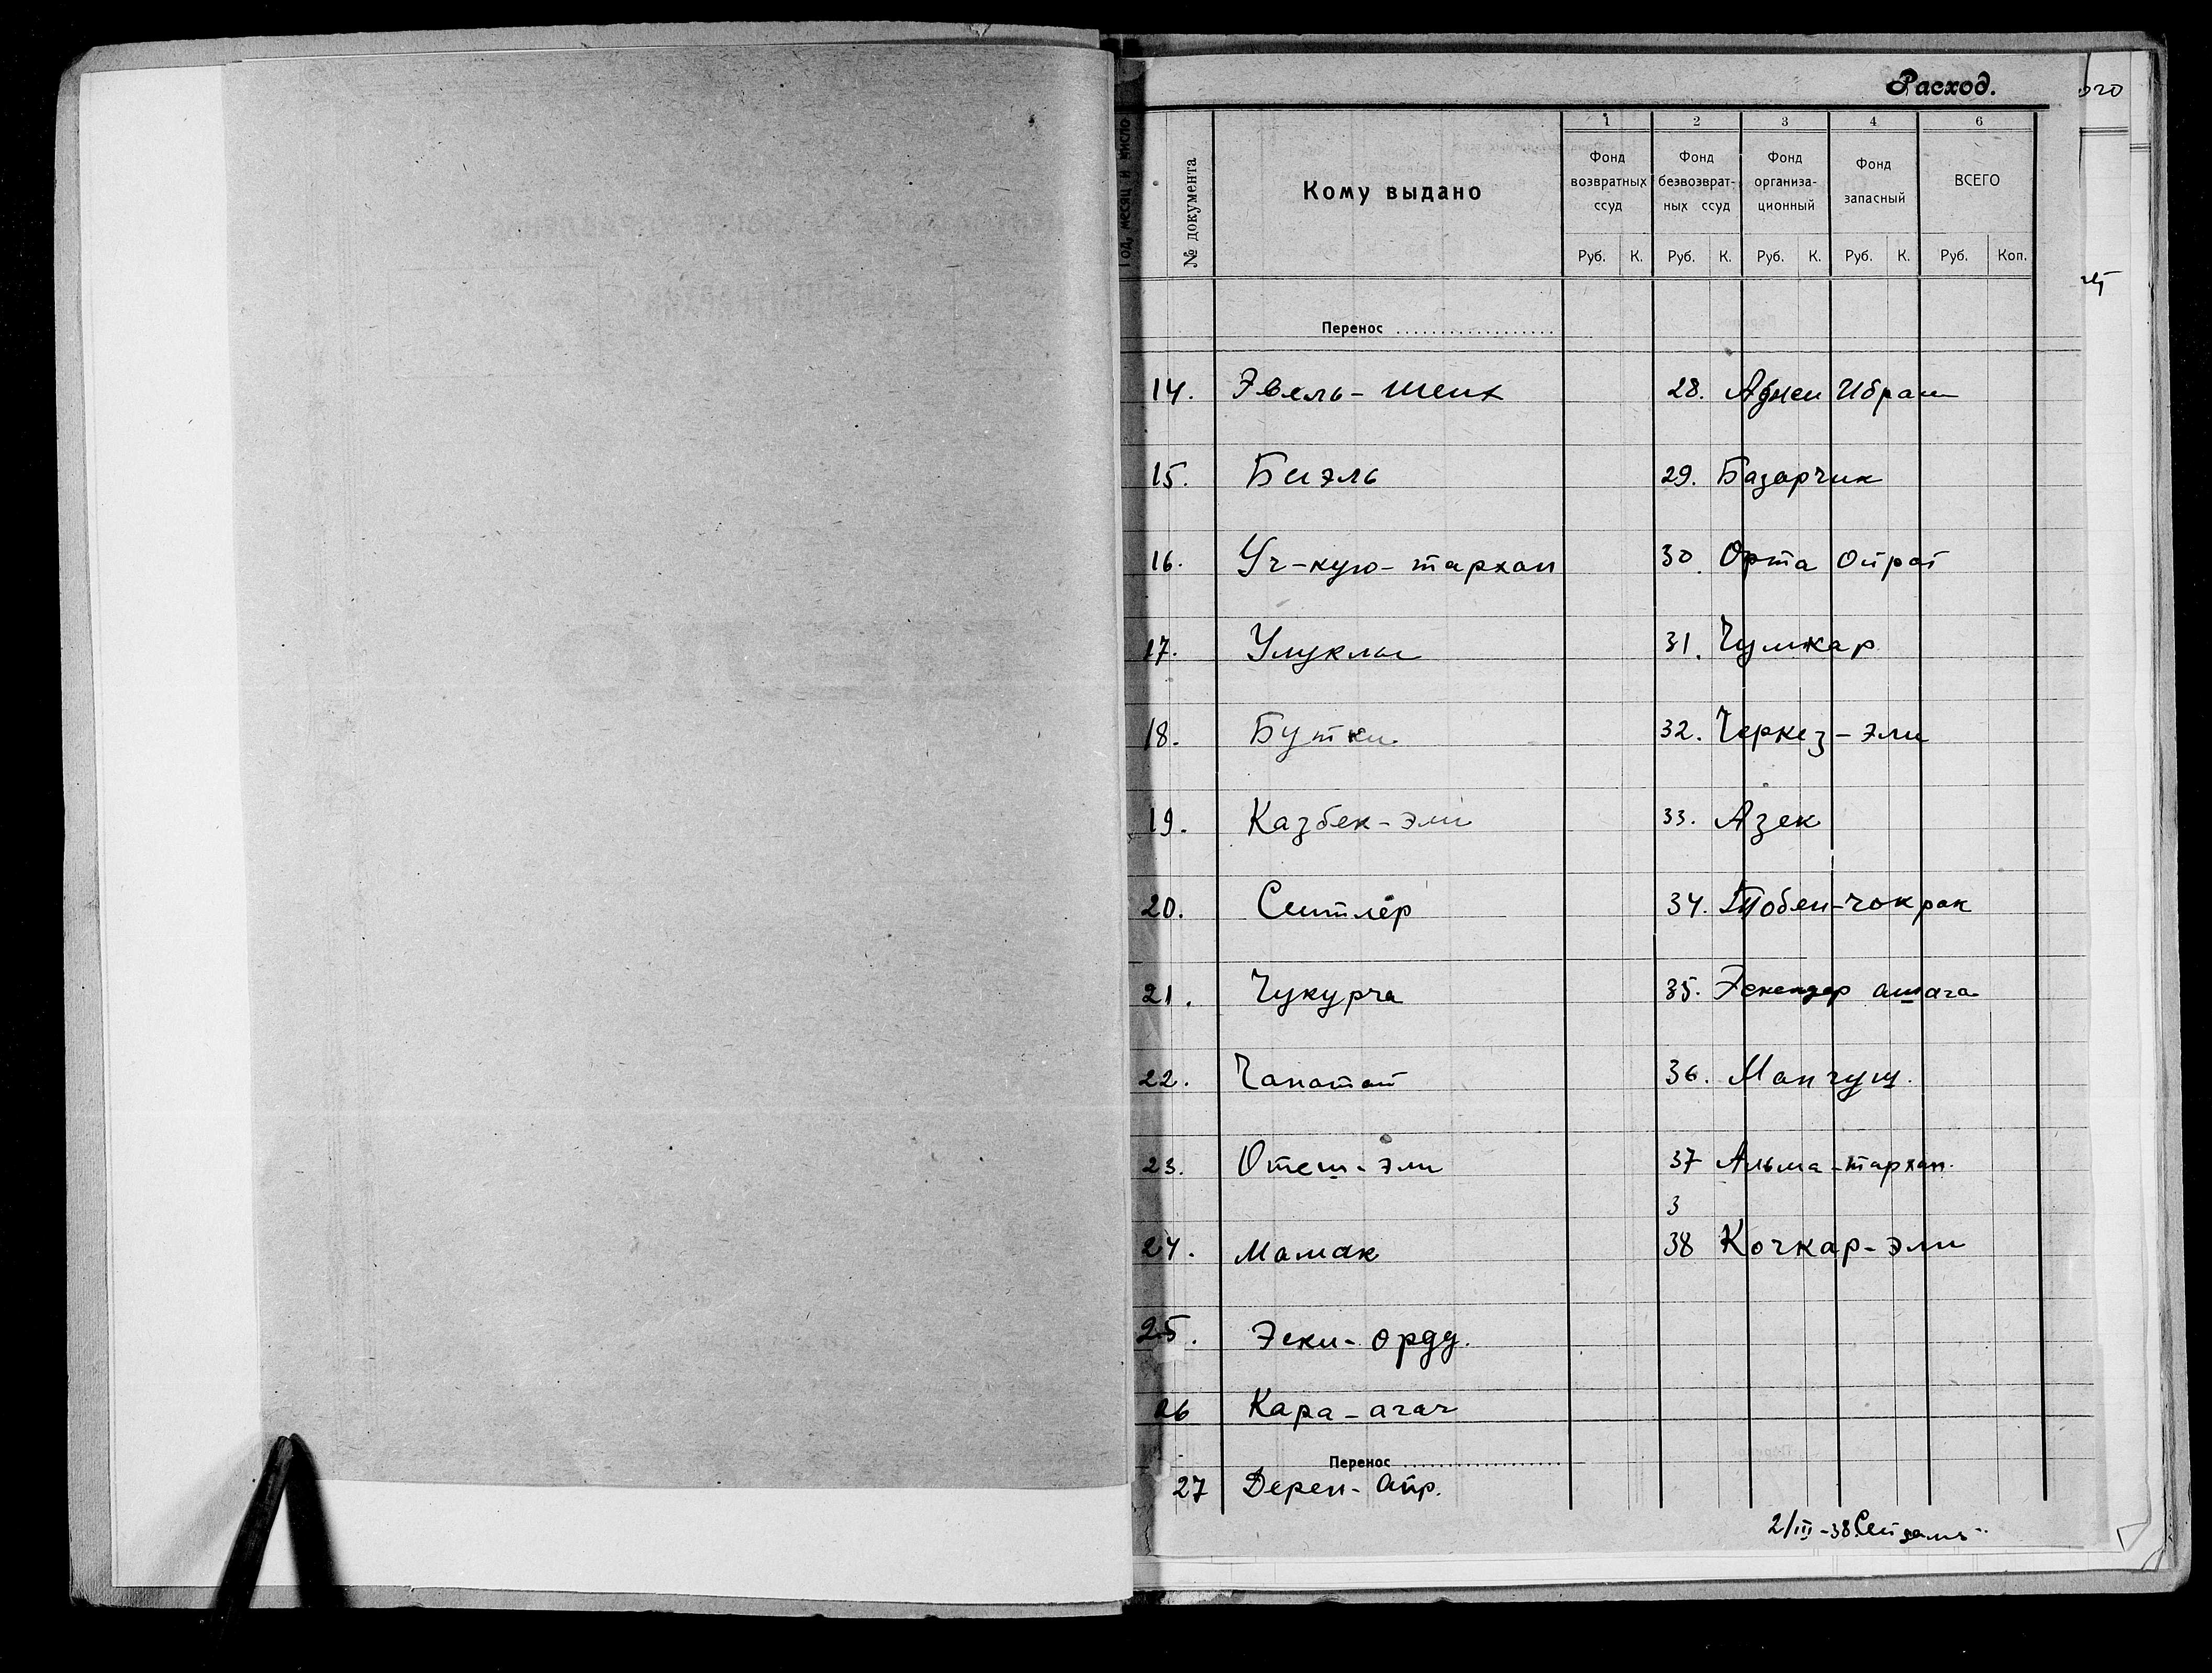 Расход.
Год, месяц и число
№ документа
Кому выдано
1 2 3 4 6
Фонд возвратных ссуд
Фонд безвозврат-ных ссуд
Фонд организа-ционный
Фонд запасный
ВСЕГО
Руб. К. Руб. К. Руб. К. Руб. К. Руб. Коп.
Перенос
14. Эвель-шейх 28. Аджи Ибрам
15. Биэль 29. Базарчик
16. Уч-кую-тархан 30. Орта Ойрат
17. Улуклы 31. Чумкар
18. Бутки 32. Черкез-эли
19. Казбек-эли 33. Азек
20. Сютлёр 34. Тобен-чокрак
21. Чукурча 35. Эскендер ашага
22. Чапотай 36. Мангуш.
23. Отеш-эли 37 Альма-тархан.
3
24. Мамак 38 Кочкар-эли
25. Эски-орду.
26 Кара-агач
Перенос
27 Дерен-Айр.
2/III-38